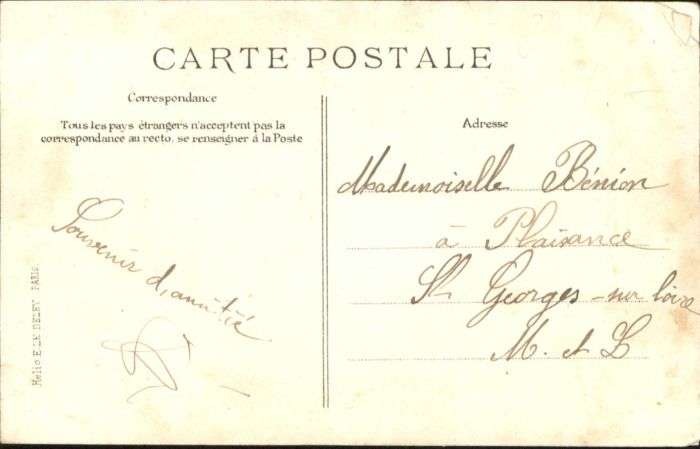 CARTE POSTALE
Correspondance
Tous les pays étrangers n'acceptent pas la
correspondance au recto, se renseigner à la Poste
Souvenir d'amitié
Helio E. LE DELEY PARIS
Adresse
Mademoiselle Bénion
à Plaisance
St Georges-sur Loire
M. et L